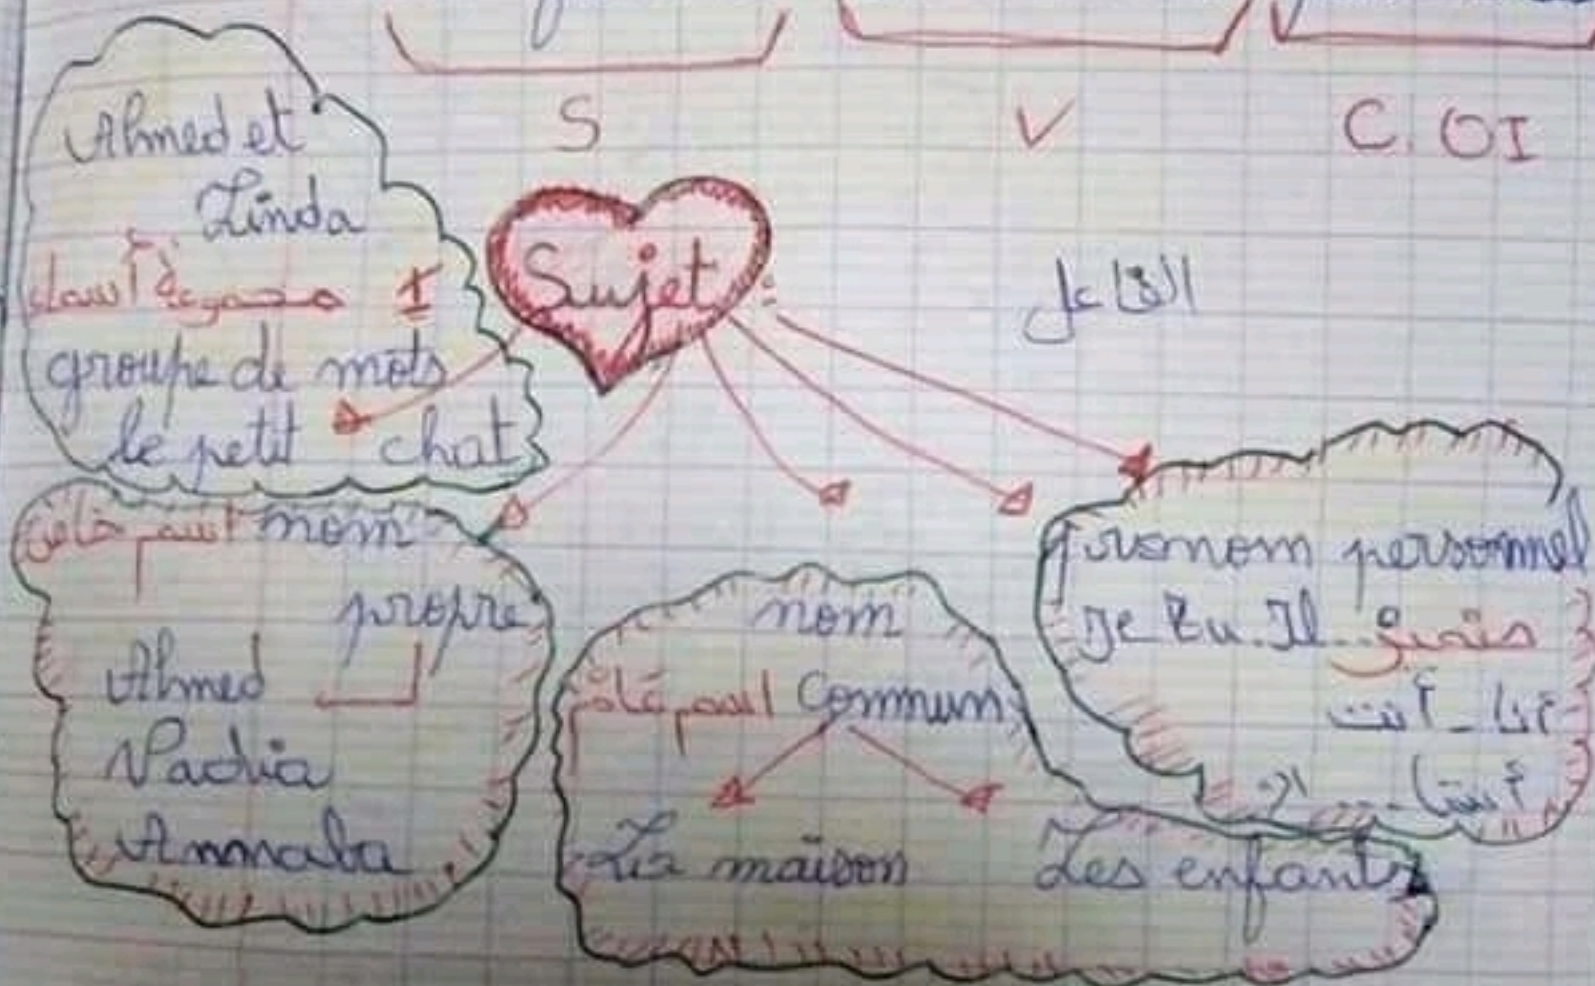 S V C.OI
Sujet :
الفاعل
Ahmed et
Linda
مجموعة أسماء
groupe de mots
le petit chat
اسم خاص nom
propre
Ahmed
Nadia
Annaba
nom
اسم عام Commun
La maison Les enfants
pronom personnel
Je Tu. Il...
أنا - أنت